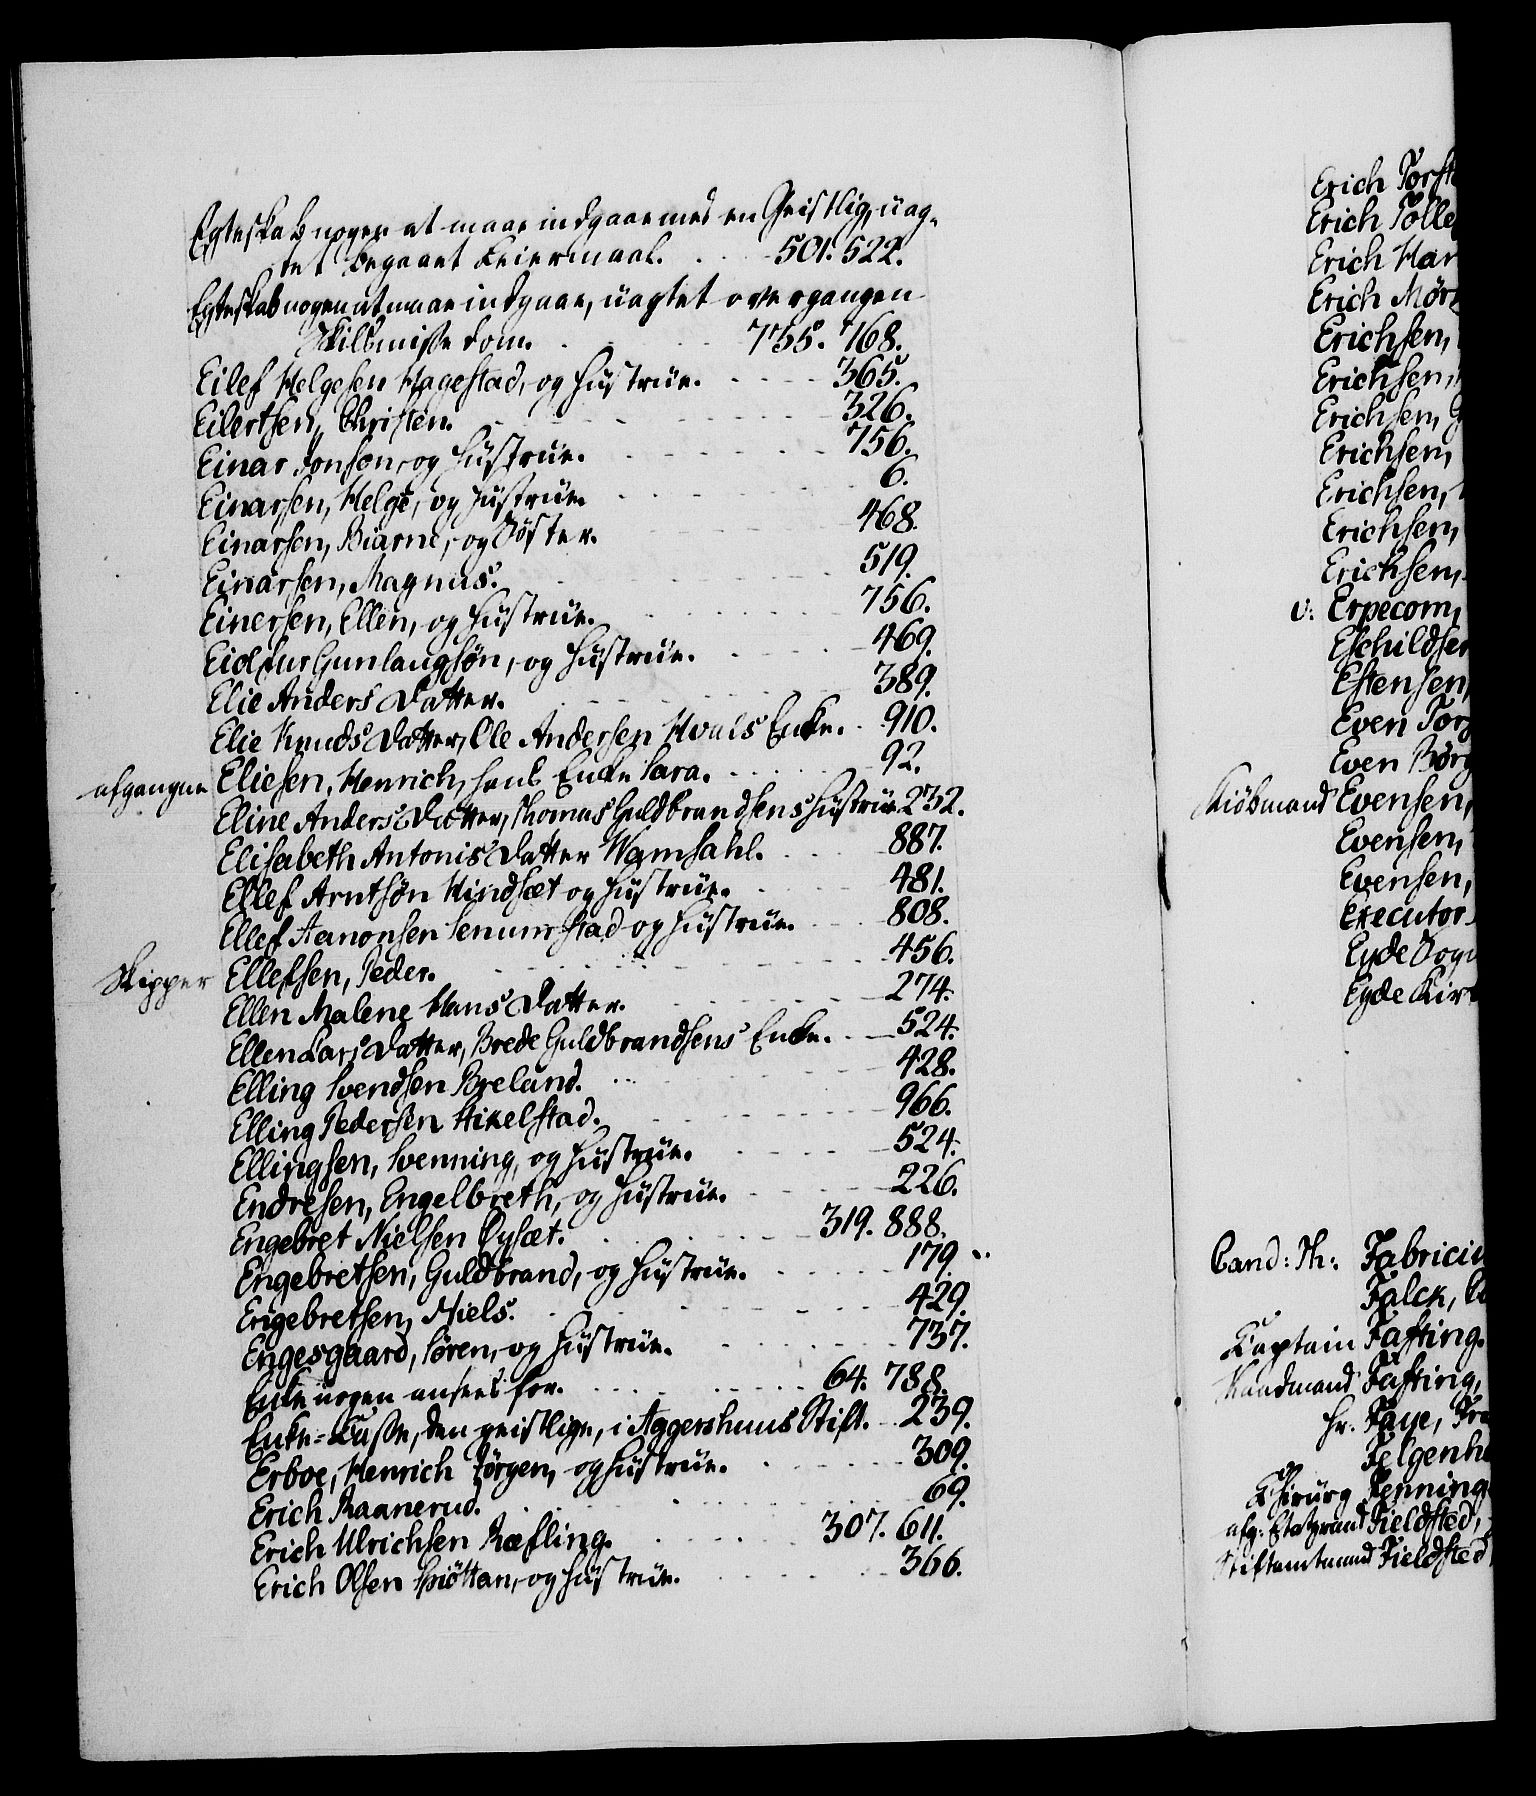 Egteskab nogen at maae indgaae med en Geistlig, uag-
tet begaaet Leiermaal. 501. 522.
Egteskab nogen at maae indgaae, uagtet overgangen
Skilsmisse dom. 755. 768.
Eilef Helgesen Hagestad, og Hustrue. 365.
Eilertsen, Christen. 326.
Einar Jonsen, og Hustrue. 756.
Einarsen, Helge, og Hustrue 6.
Einarsen, Biarne, og Söster. 468.
Einarsen, Magnus. 519.
Einersen, Ellen, og Hustrue. 756.
Eidfur Gunlaugsøn, og Hustrue. 469.
Elie Anders Datter. 389.
Elie Knuds Datter, Ole Andersen Hvals Enke. 910.
afgangne Eliesen, Henrich, hans Enke Sara. 92.
Eline Anders Datter, Thomas Guldbrandsens Hustrue 232.
Elisabeth Antonis Datter Wamsahl. 887.
Ellef Arntsøn Hindsæt og Hustrue. 481.
Ellef Aanonsen Senumstad og Hustrue. 808.
Skipper Ellefsen, Peder. 456.
Ellen Malene Hans Datter. 274.
Ellen Lars Datter, Brede Guldbrandsens Enke. 524.
Elling Svendsen Breland. 428.
Elling Pedersen Hikelstad. 966.
Ellingsen, Svenning, og Hustrue. 524.
Endresen, Engelbreth, og Hustrue. 226.
Engebret Nielsen Öysæt. 319. 888.
Engebretsen, Guldbrand, og Hustrue. 179.
Engebretsen, Niels. 429.
Engesgaard, Søren, og Hustrue. 737.
Enke nogen ansees for. 64. 788.
Enke-Casse, den geistlige, i Aggershuus Stift. 239.
Erboe, Henrich Jörgen, og Hustrue. 309.
Erich Raanerud. 69.
Erich Ulrichsen Kæfling. 307. 611.
Erich Olsen Skiöttan, og Hustrue. 366.
Erich Torst
Erich Tolle
Erich Har
Erich Mör
Erichsen,
Erichsen,
Erichsen, G
Erichsen,
Erichsen,
Erichsen,
Erichsen,
v: Erpecom,
Eschildsen
Estensen,
Even Tor
Even Börg
Kiöbmand Evensen,
Evensen,
Evensen,
Executor
Eyde Sogn
Eyde Kir
Cand: Th: Fabriciu
Falck,
Captain Fasting.
Kaudmand Fasting,
Hr. Faye, Fr
Felgenh
Chirurg Fenning
afg: Etatsraad Fieldsted,
Stiftamtmand Fieldsted